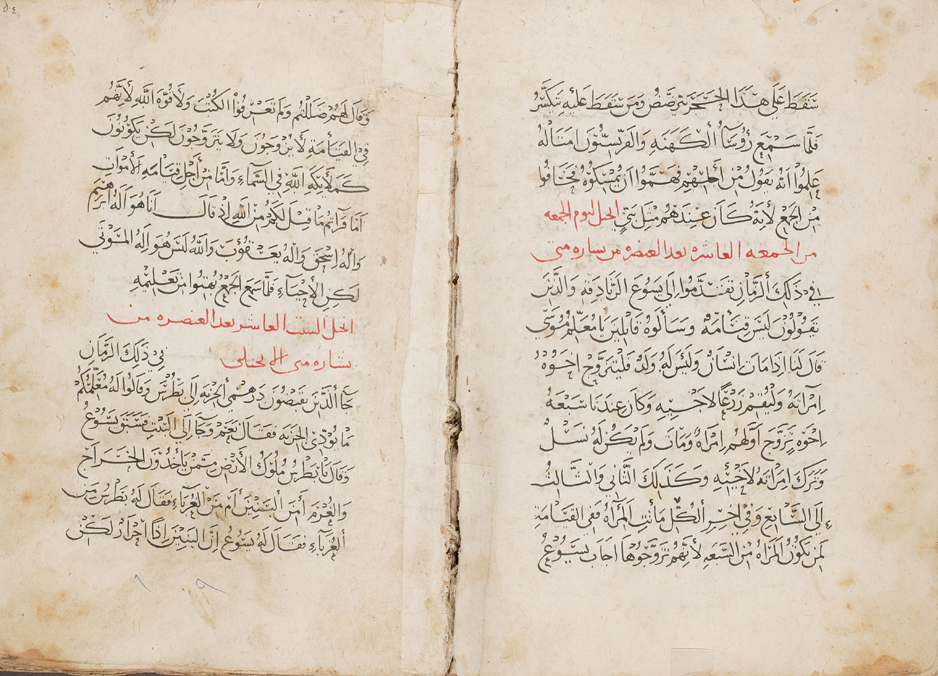 سَقَط عَلَى هذا الحَجَر يترضض ومن سَقَط عَليه يتكسَّر
فلمّا سَمِع رُؤسَاْ الكَهنَه وَالفرّيسّيُّون امثاله
عَلموا انّه يَقول من اَجلهم فهَمُّوا اَن يمسكوهُ فخَافُوا
من الجمع لأنهُ كانَ عندهم مثل نَبّي الانجيل ليوم الجمعه
من الجمعه العاشره بعد العنصره من بشاره متى
في ذلك الزمان تقدّموا الى يَسُوع الزنادقه والّذين
يقولون ليس قيامَه وَسَألوه قايلين يا معلم مُوسَى
قال لنا اذا مات انسَان وليس له ولد فليتزوج اخوه
امرَاته وليُقم زرعًا لاخيه وكان عندنا سَبعَه
اخوه تزوج اوّلهم امرأه ومات ولم يكن له نسل
وترك امراته لاخيه وكذلك الثاني والثالث
إلى السَّابع وفي اخر الكل ماتت المرأه ففي القيامه
لمن تكون المرأه من السبعه لأنهم تزوجوها اجاب يسوع
وقال لهم ضللتم ولم تعرفوا الكتب ولا قوه الله لأنهم
في القيامه لا يزوجون ولا يتزوجون لكن يكونون
كملايكه الله في السماء وامّا من أجل قيامه الأموات
أما قرأتم ما قيل لكم من الله اذ قال انا هو اله ابرهيم
واله اسحق واله يعقوب والله ليس هو اله الموتى
لكن الأحياء فلما سمع الجمع بهتوا من تعليمه
انجيل السبت العاشر بعد العنصره من
بشاره متى الانجيلي في ذلك الزمان
جا الذين يقبضون درهمي الجزيه إلى بطرس وقالوا له معلمكم
ما يودّي الجزيه فقال نعم وجا إلى البيت فسبق يسوع
وقال يا بطرس ملوك الأرض ممن ياخذون الخراج
والغرم أمن البنين أم من الغرباء فقال له بطرس من
الغرباء فقال له يسوع إن البنين اذا احرار لكن